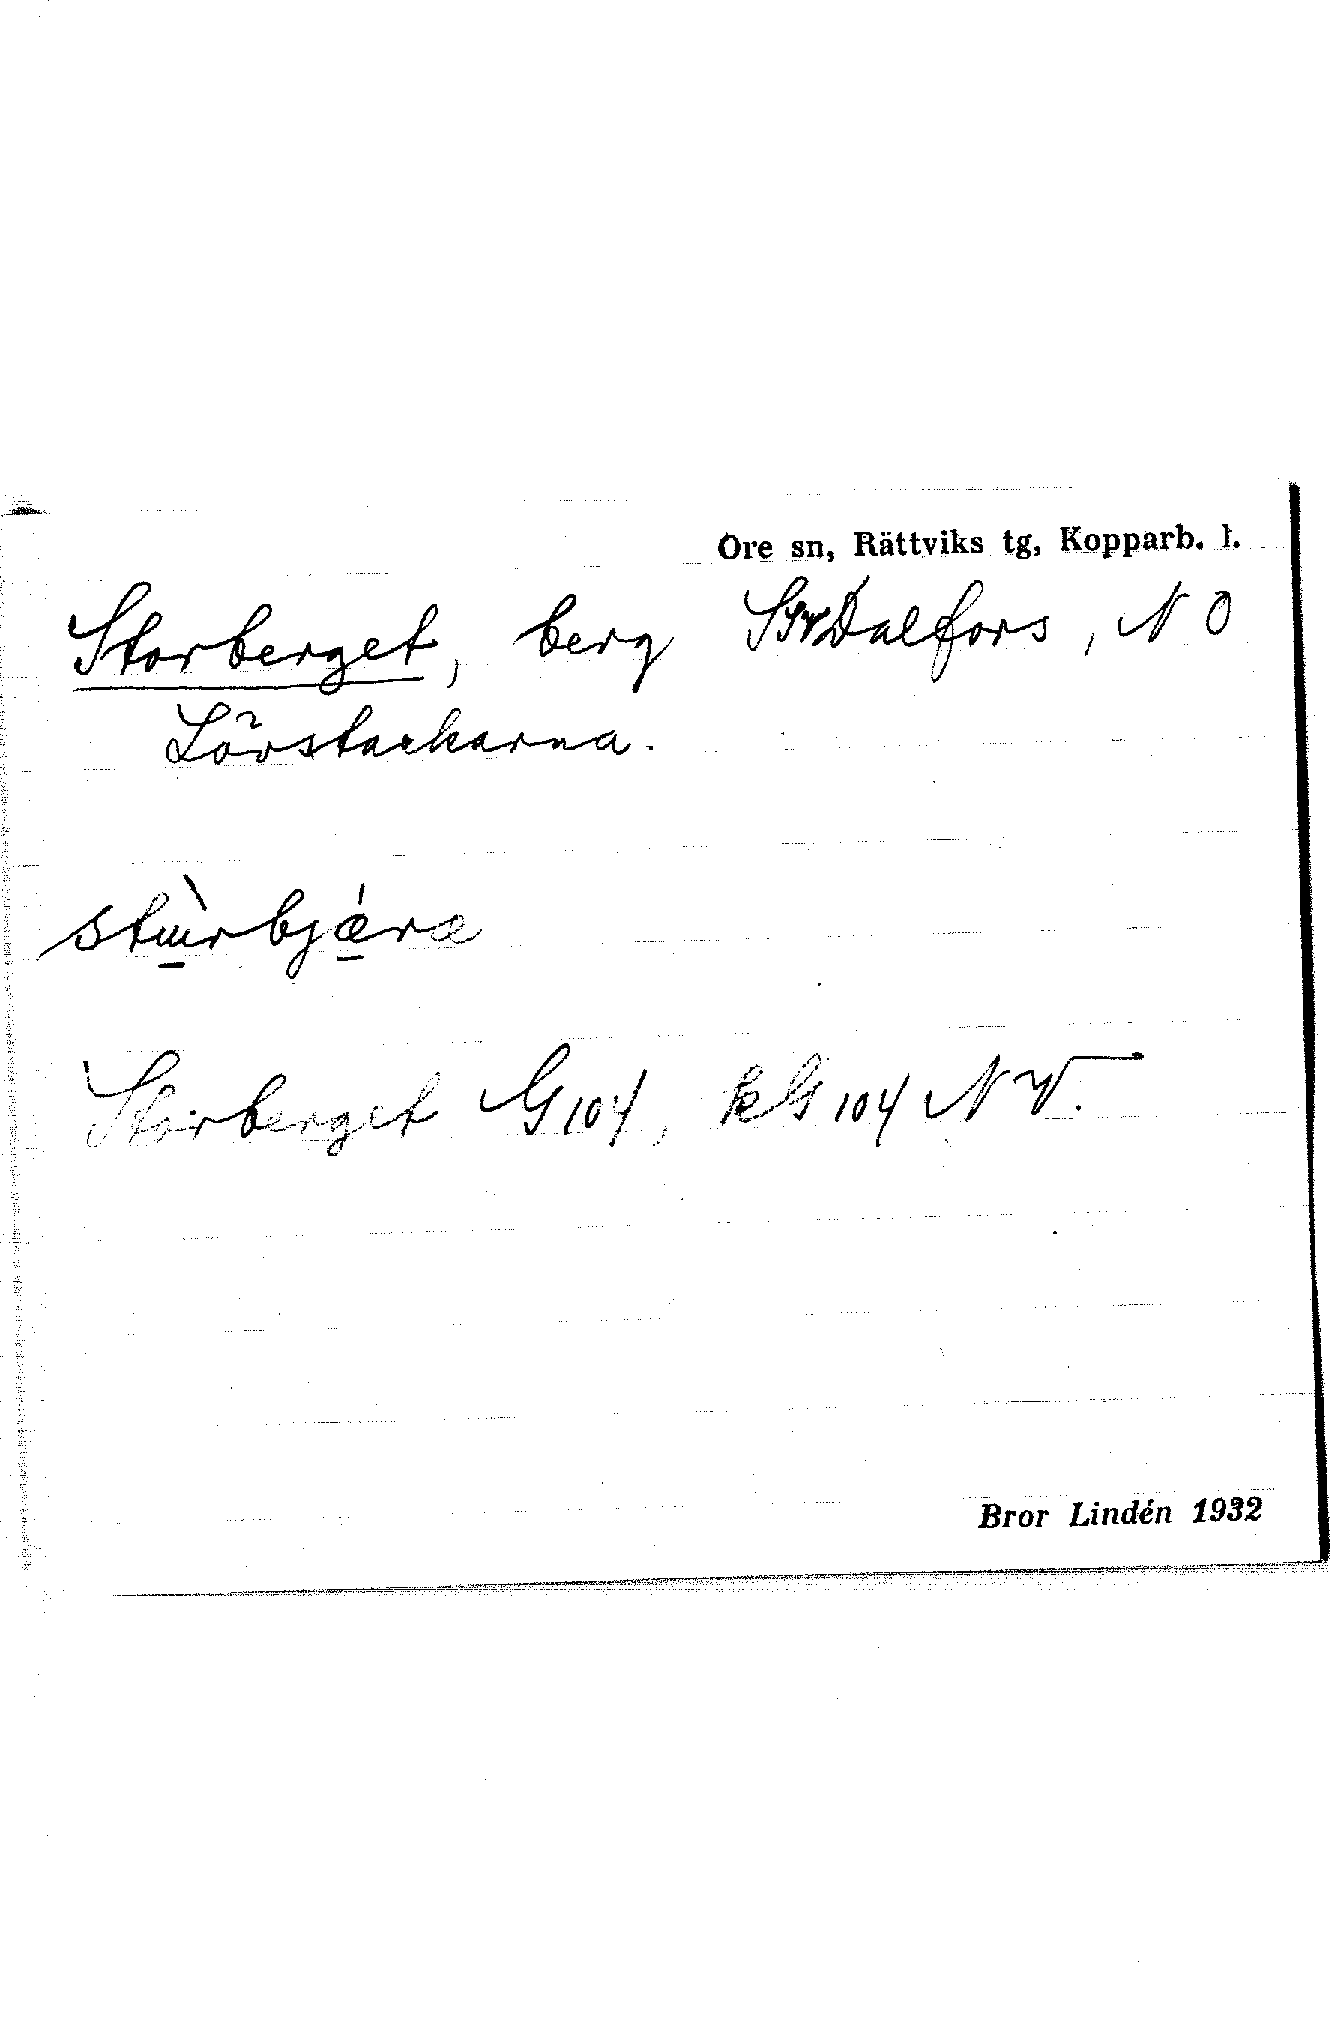 Ore sn, Rättviks tg, Kopparb. l.
Storberget, berg Dalfors, N O
Lövstackarna.
Storberget G 104, k G 104 N V.
Bror Lindén 1932